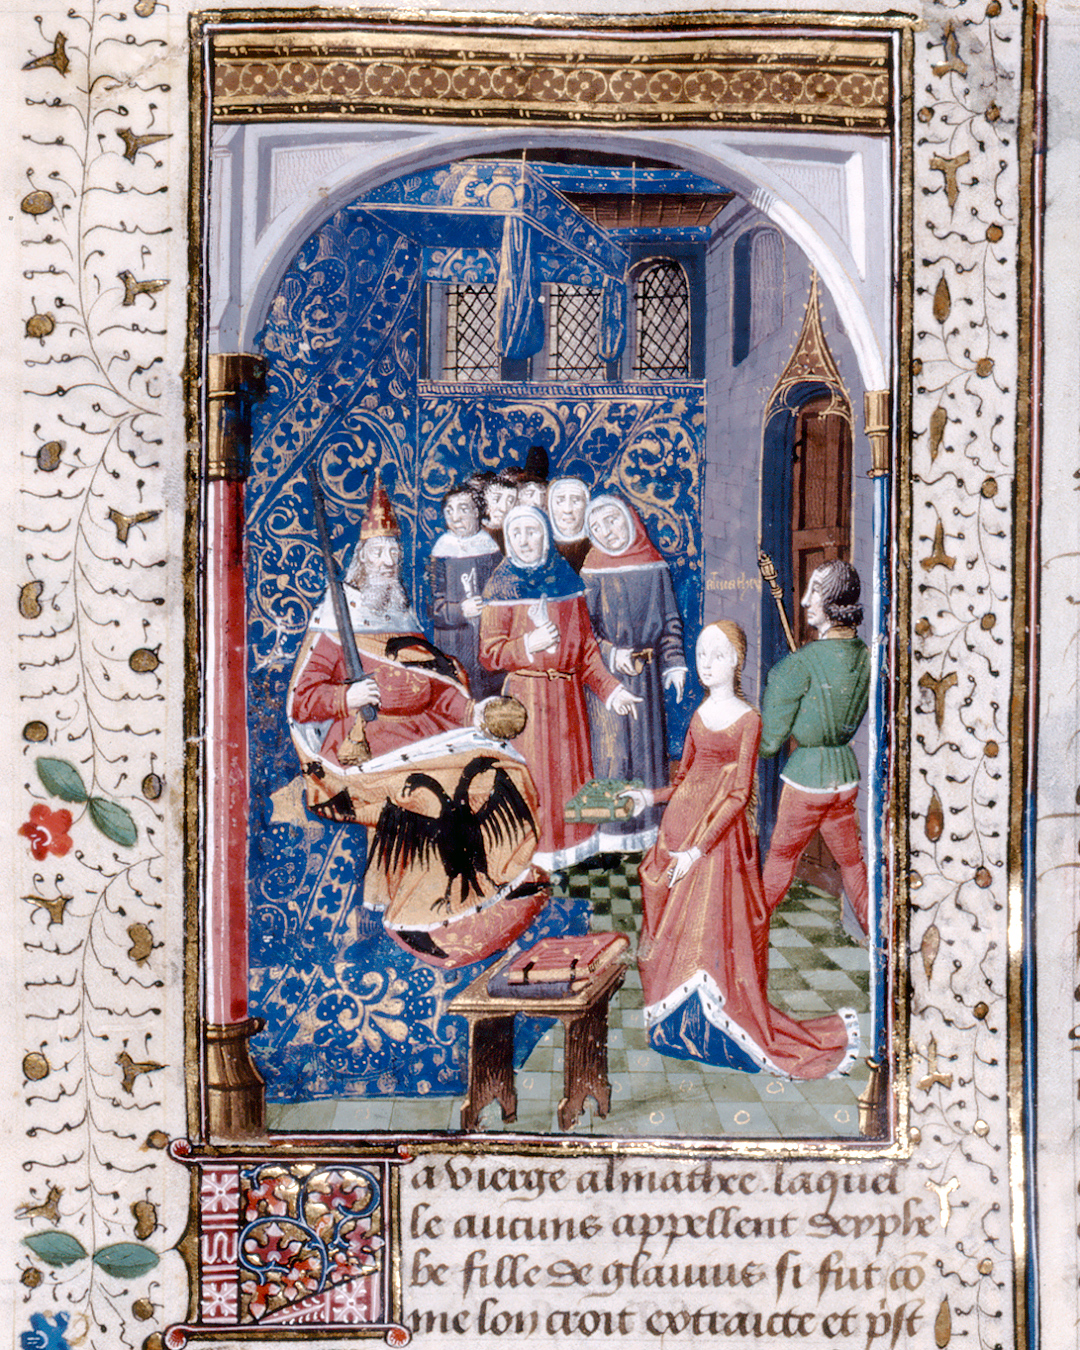 La vierge almathee. laquel
le aucuns appellent deyphe
be fille de glaucus si fut cō
me lon croit extraicte et p̄st